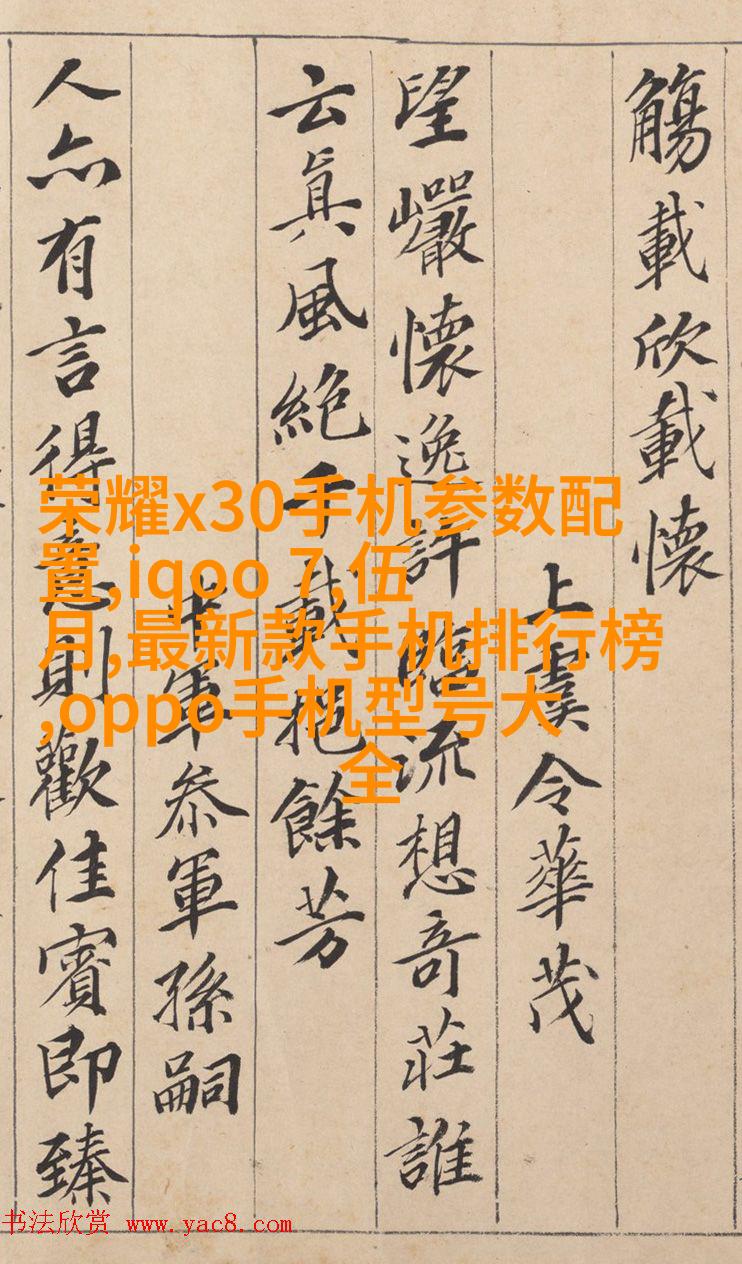 觴載欣載懷
上虞令華茂
望巖懷逸許臨流想奇莊誰
云眞風絶千載挹餘芳
中軍叅軍孫嗣
人亦有言得意則歡佳賓即臻
荣耀x30手机参数配
置,iqoo 7,伍
月,最新款手机排行榜
,oppo手机型号大
全
书法欣赏 www.yac8.com